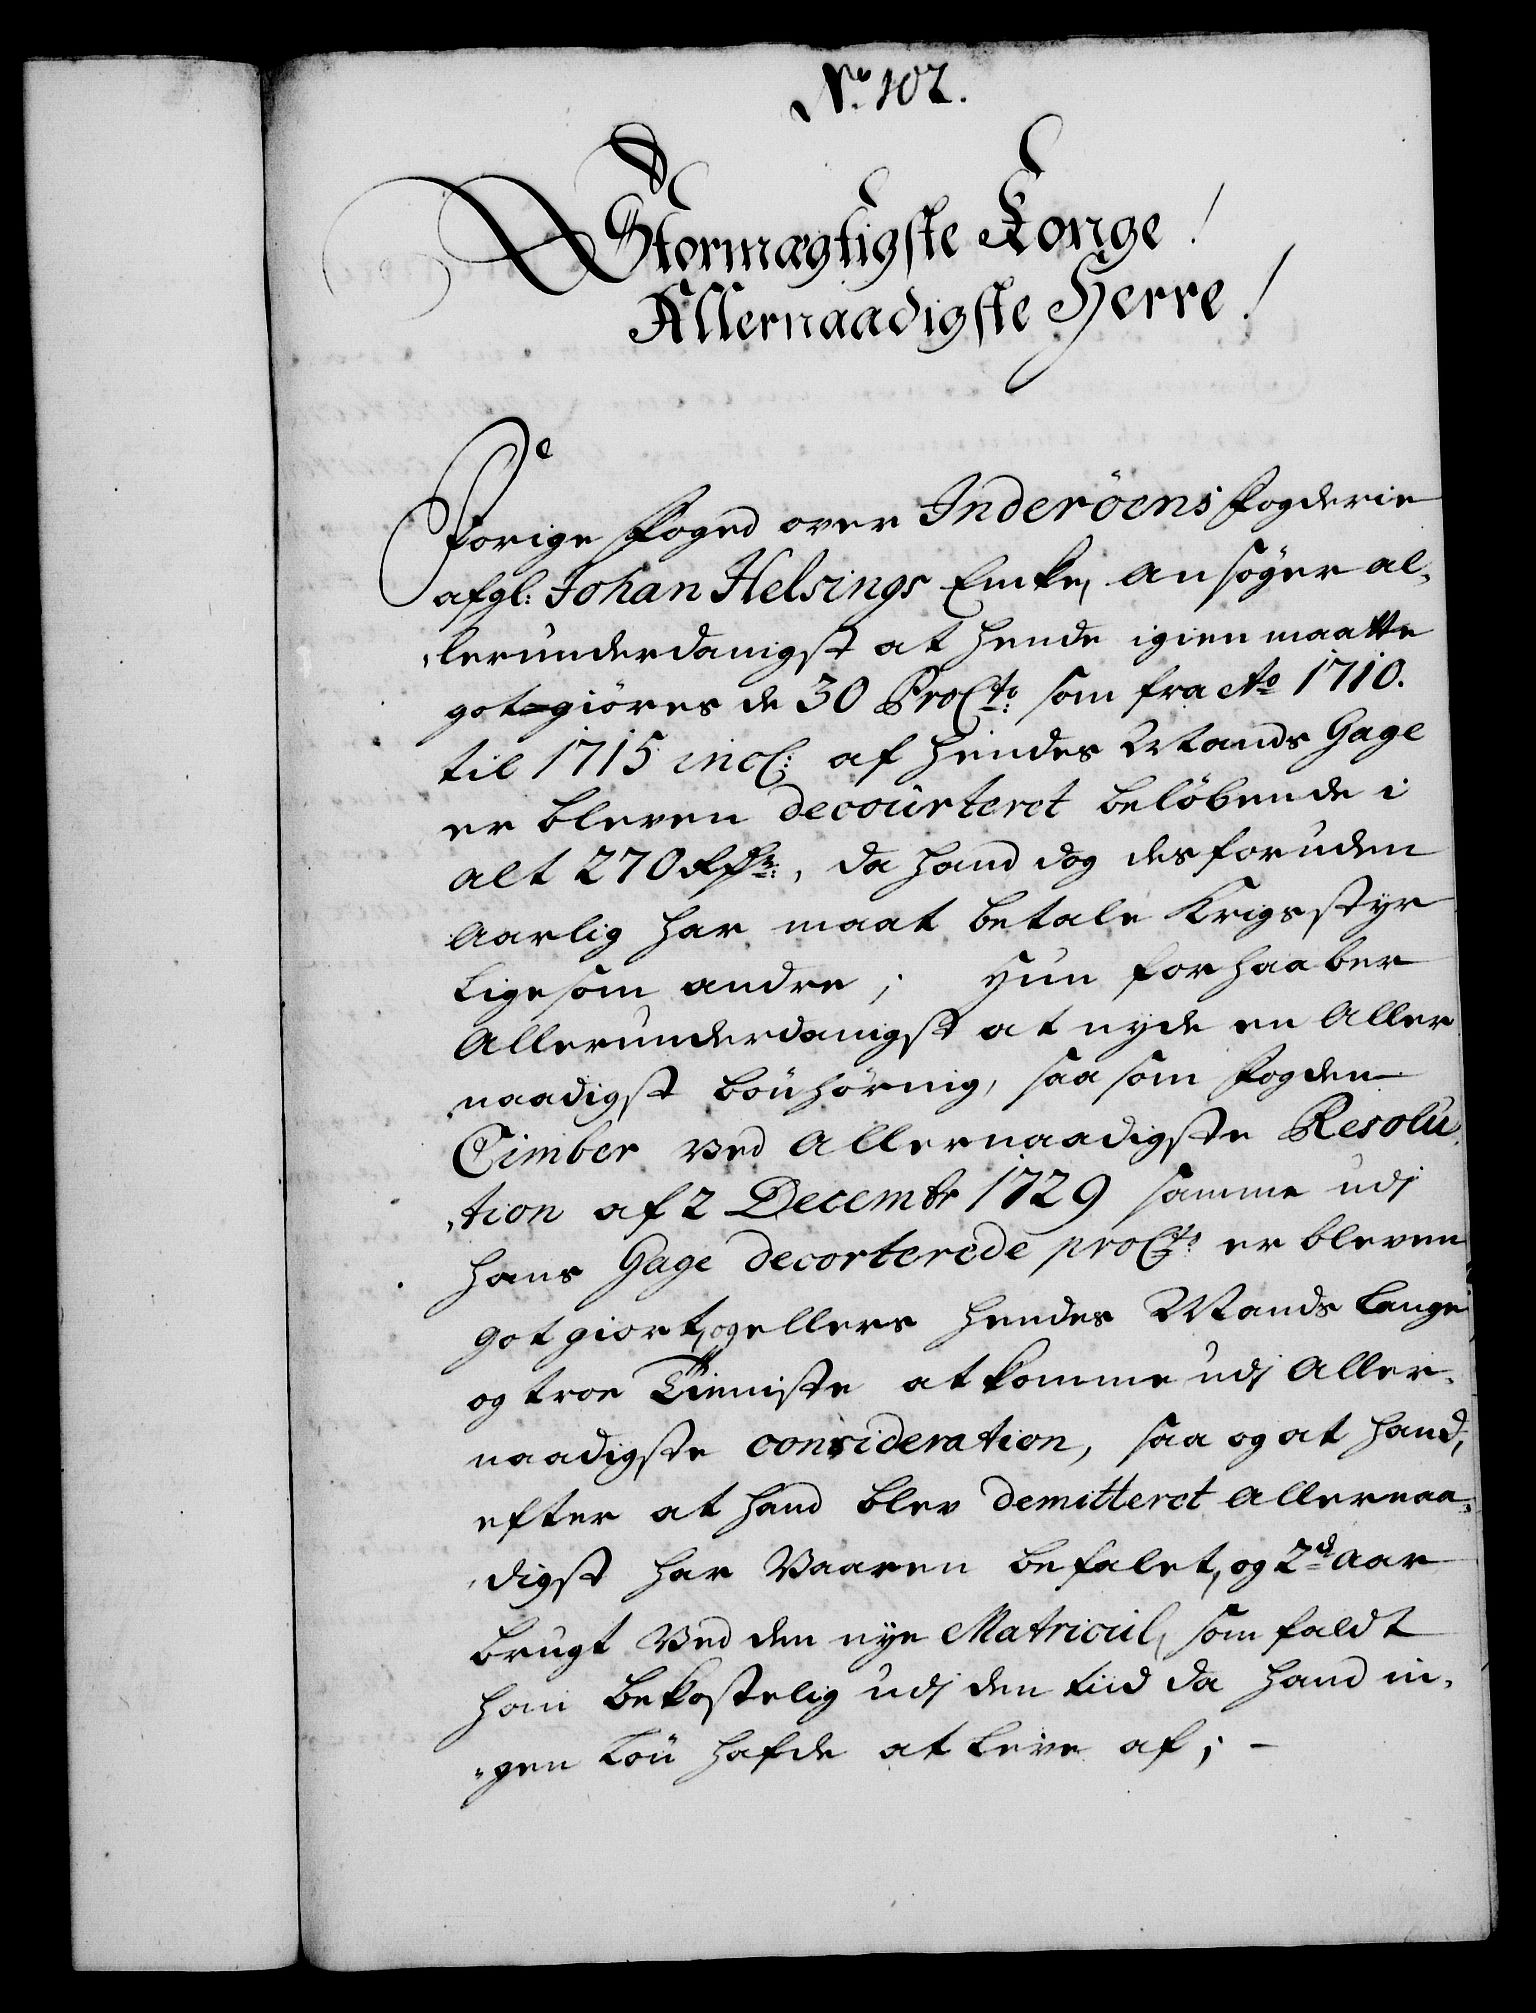 No. 102.
Stormægtigste Konge!
Allernaadigste Herre!
Forige Foged over Inderöens Fogderie
afgl: Johan Helsings Encke, ansøger al-
lerunderdanigst at hende igien maatte
gotgiöres de 30 ProCto: som fra Ao 1710.
til 1715 incl: af hendes Mands Gage
er bleven decourteret beløbende i
alt 270 Rdr:, da hand dog desforuden
Aarlig har maat betale Krigsstyr
ligesom andre; Hun forhaaber
Allerunderdanigst at nyde en Aller
naadigst bönhörnig, saasom Fogden
Cimber ved Allernaadigste Resolu-
tion af 2 Decembr 1729 samme udj
hans Gage decorterede proCto: er bleven
gotgiort, og ellers hendes Mands lange
og troe Tieniste at komme udj Aller-
naadigste consideration, saa og at hand,
efter at hand blev demitteret Allernaa-
digst har Vaaren befalet, og 2de Aar
brugt Ved den nye Matricul, som faldt
ham bekostelig udj den tiid da hand in-
gen Lön hafde at leve af; -